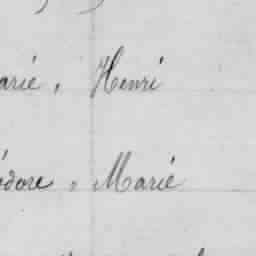 arié, Henri
édore, Marié